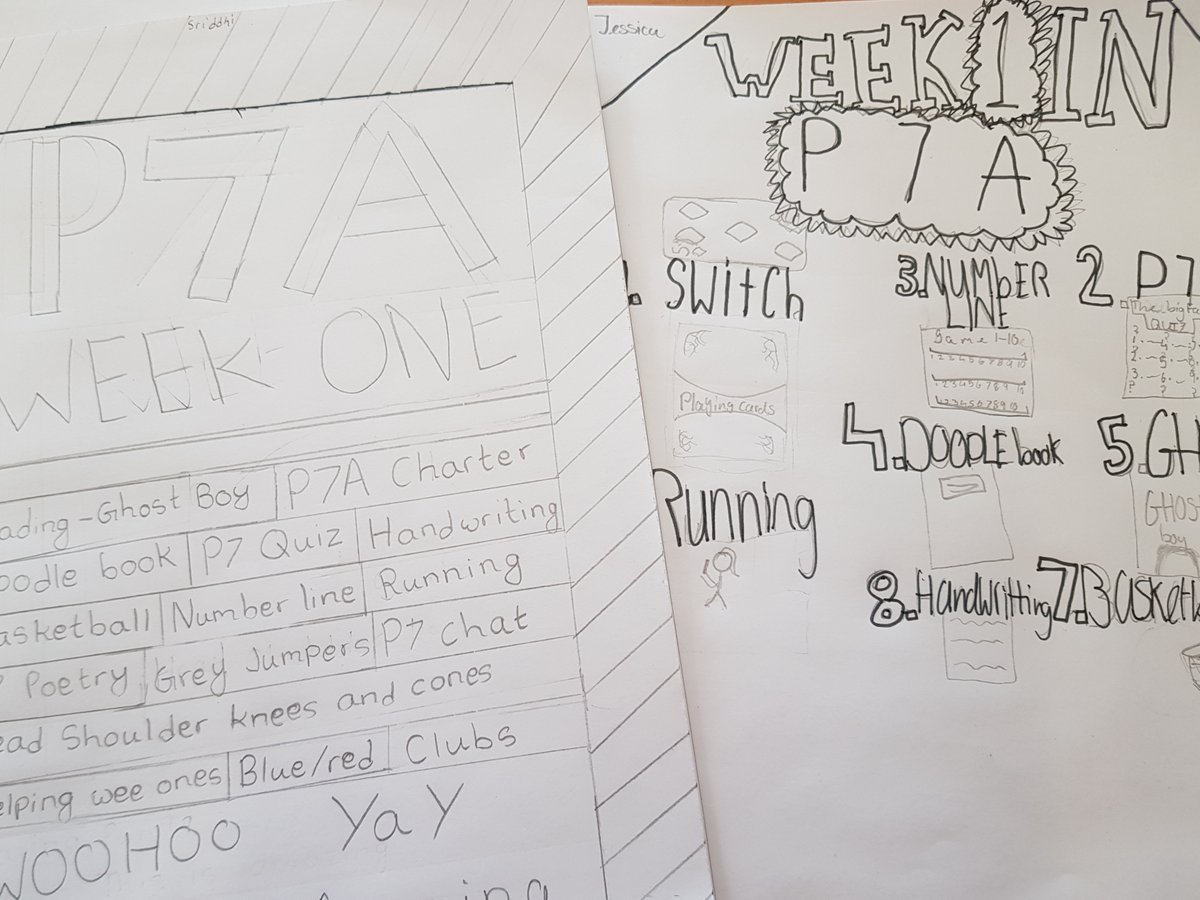 Sriddhi
P7A
WEEK ONE
ading-Ghost Boy P7A Charter
oodle book P7 Quiz Handwriting
asketball Number line Running
Poetry Grey Jumpers P7 chat
ead Shoulder knees and cones
elping wee ones Blue/red Clubs
WOOHOO YaY
Jessica
WEEK 1 IN
P7A
SWitCh
Playing cards
3.NUMbER
LINE
Game 1-10
1 2 3 4 5 6 7 8 9 10
1 2 3 4 5 6 7 8 9 10
1 2 3 4 5 6 7 8 9 10
2 P7
The big
QUIZ
1. 4.
2. 5.
3. 6.
4.DOODLE book
5.GH
GHOS
boy
Running
8.HandWritting
7.BASKetb